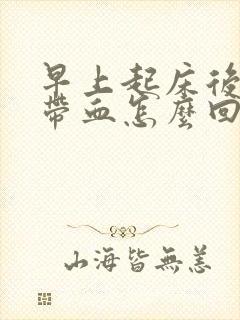 早上起床後
帶血怎麼回
山海皆無恙